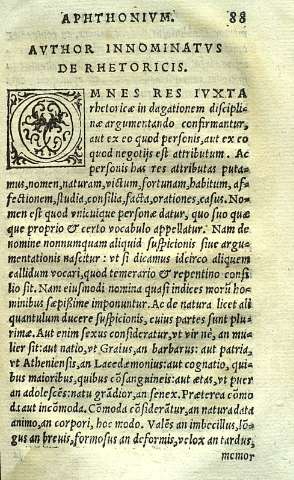 APHTHONIVM. 88
AVTHOR INNOMINATVS
DE RHETORICIS.
OMNES RES IVXTA
rhetoricæ indagationem disciplinæ
argumentando confirmantur,
aut ex eo quod personis, aut ex eo
quod negotijs est attributum. Ac
personis has res attributas putamus,
nomen, naturam, victum, fortunam, habitum, affectionem,
studia, consilia, facta, orationes, casus. Nomen
est quod vnicuique personæ datur, quo suo quæque
proprio & certo vocabulo appellatur. Nam de
nomine nonnunquam aliquid suspicionis siue argumentationis
nascitur: vt si dicamus idcirco aliquem
callidum vocari, quod temerario & repentino consilio
sit. Nam eiusmodi nomina quasi indices morũ hominibus
sæpißime imponuntur. Ac de natura licet aliquantulum
ducere suspicionis, cuius partes sunt plurimæ.
Aut enim sexus consideratur, vt vir nè, an mulier
sit: aut natio, vt Graius, an barbarus: aut patria,
vt Atheniensis, an Lacedæmonius: aut cognatio, quibus
maioribus, quibus cõsanguineis: aut ætas, vt puer
an adolescẽs: natu grãdior, an senex. Præterea cõmoda:
aut incõmoda. Cõmoda cõsiderãtur, an natura data
animo, an corpori, hoc modo. Valẽs an imbecillus, lõgus
an breuis, formosus an deformis, velox an tardus,
memor